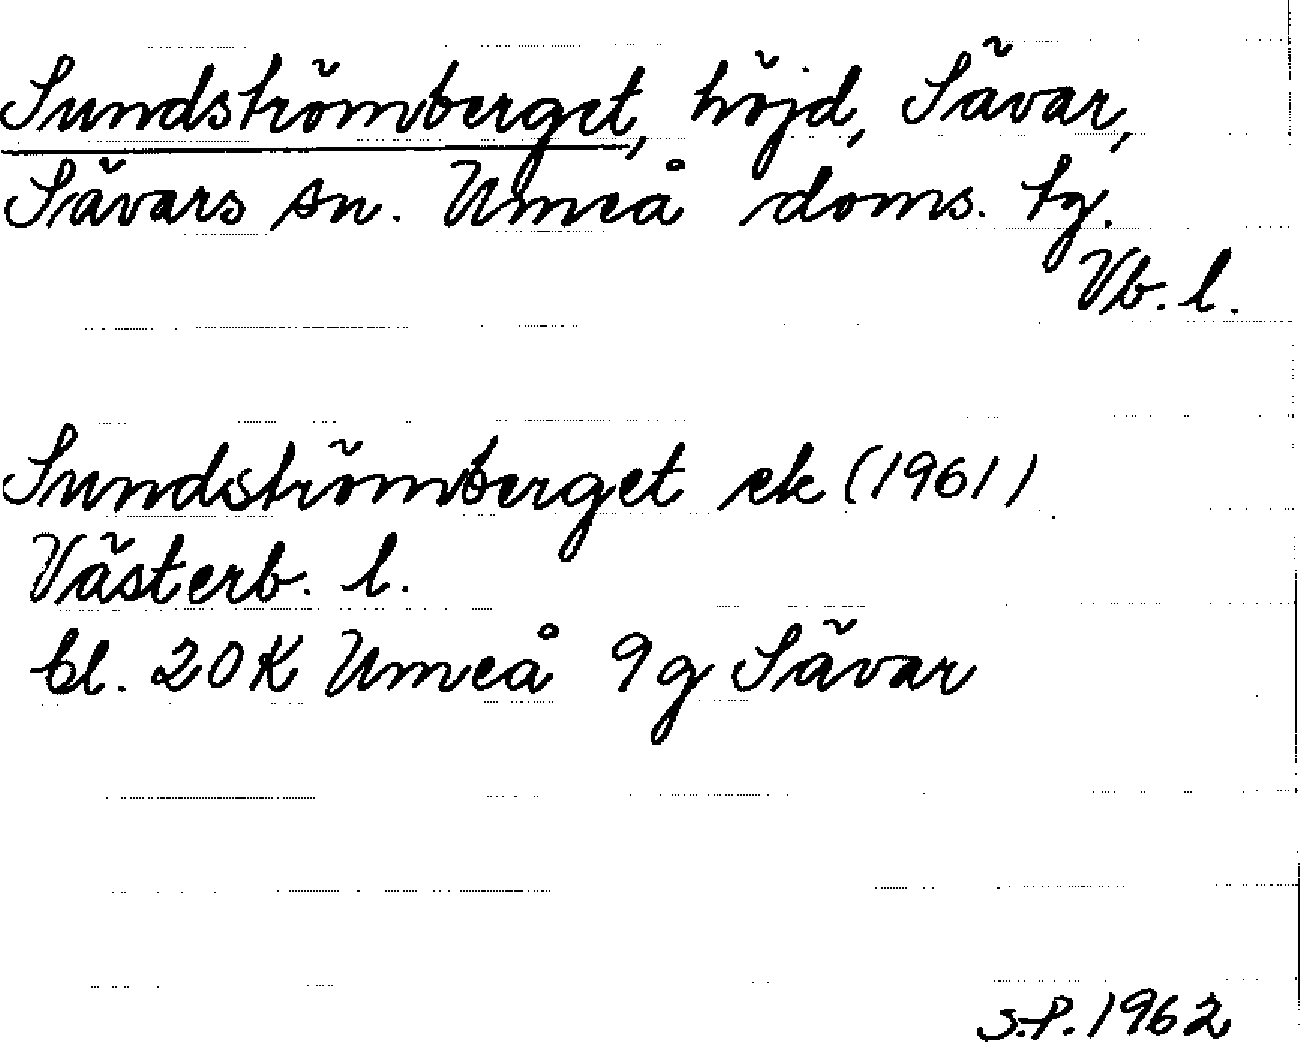 Sundströmberget, höjd, Sävar,
Sävars sn. Umeå doms. tg.
Vb. l.
Sundströmberget ek (1961)
Västerb. l.
bl. 20K Umeå 9g Sävar
S.P. 1962